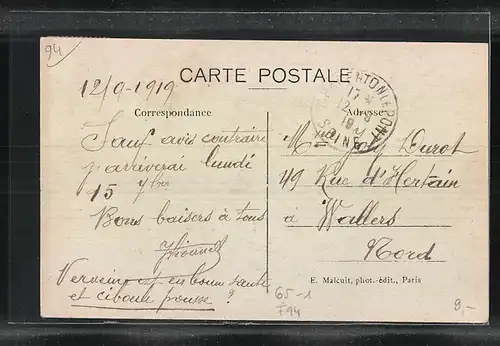 94
12/9-1919
CARTE POSTALE
Correspondance
Adresse
17 *
12 - 9
19
SEINE
Sauf avis contraire
j'arriverai lundi
15 7bre
Bons baisers à tous
Verveine et en bonne santé
et ciboule pousse ?
Durot
49 Rue d'Hertain
à Wallers
Nord
E. Malcuit, phot.-édit., Paris
65-1
F94
9,-